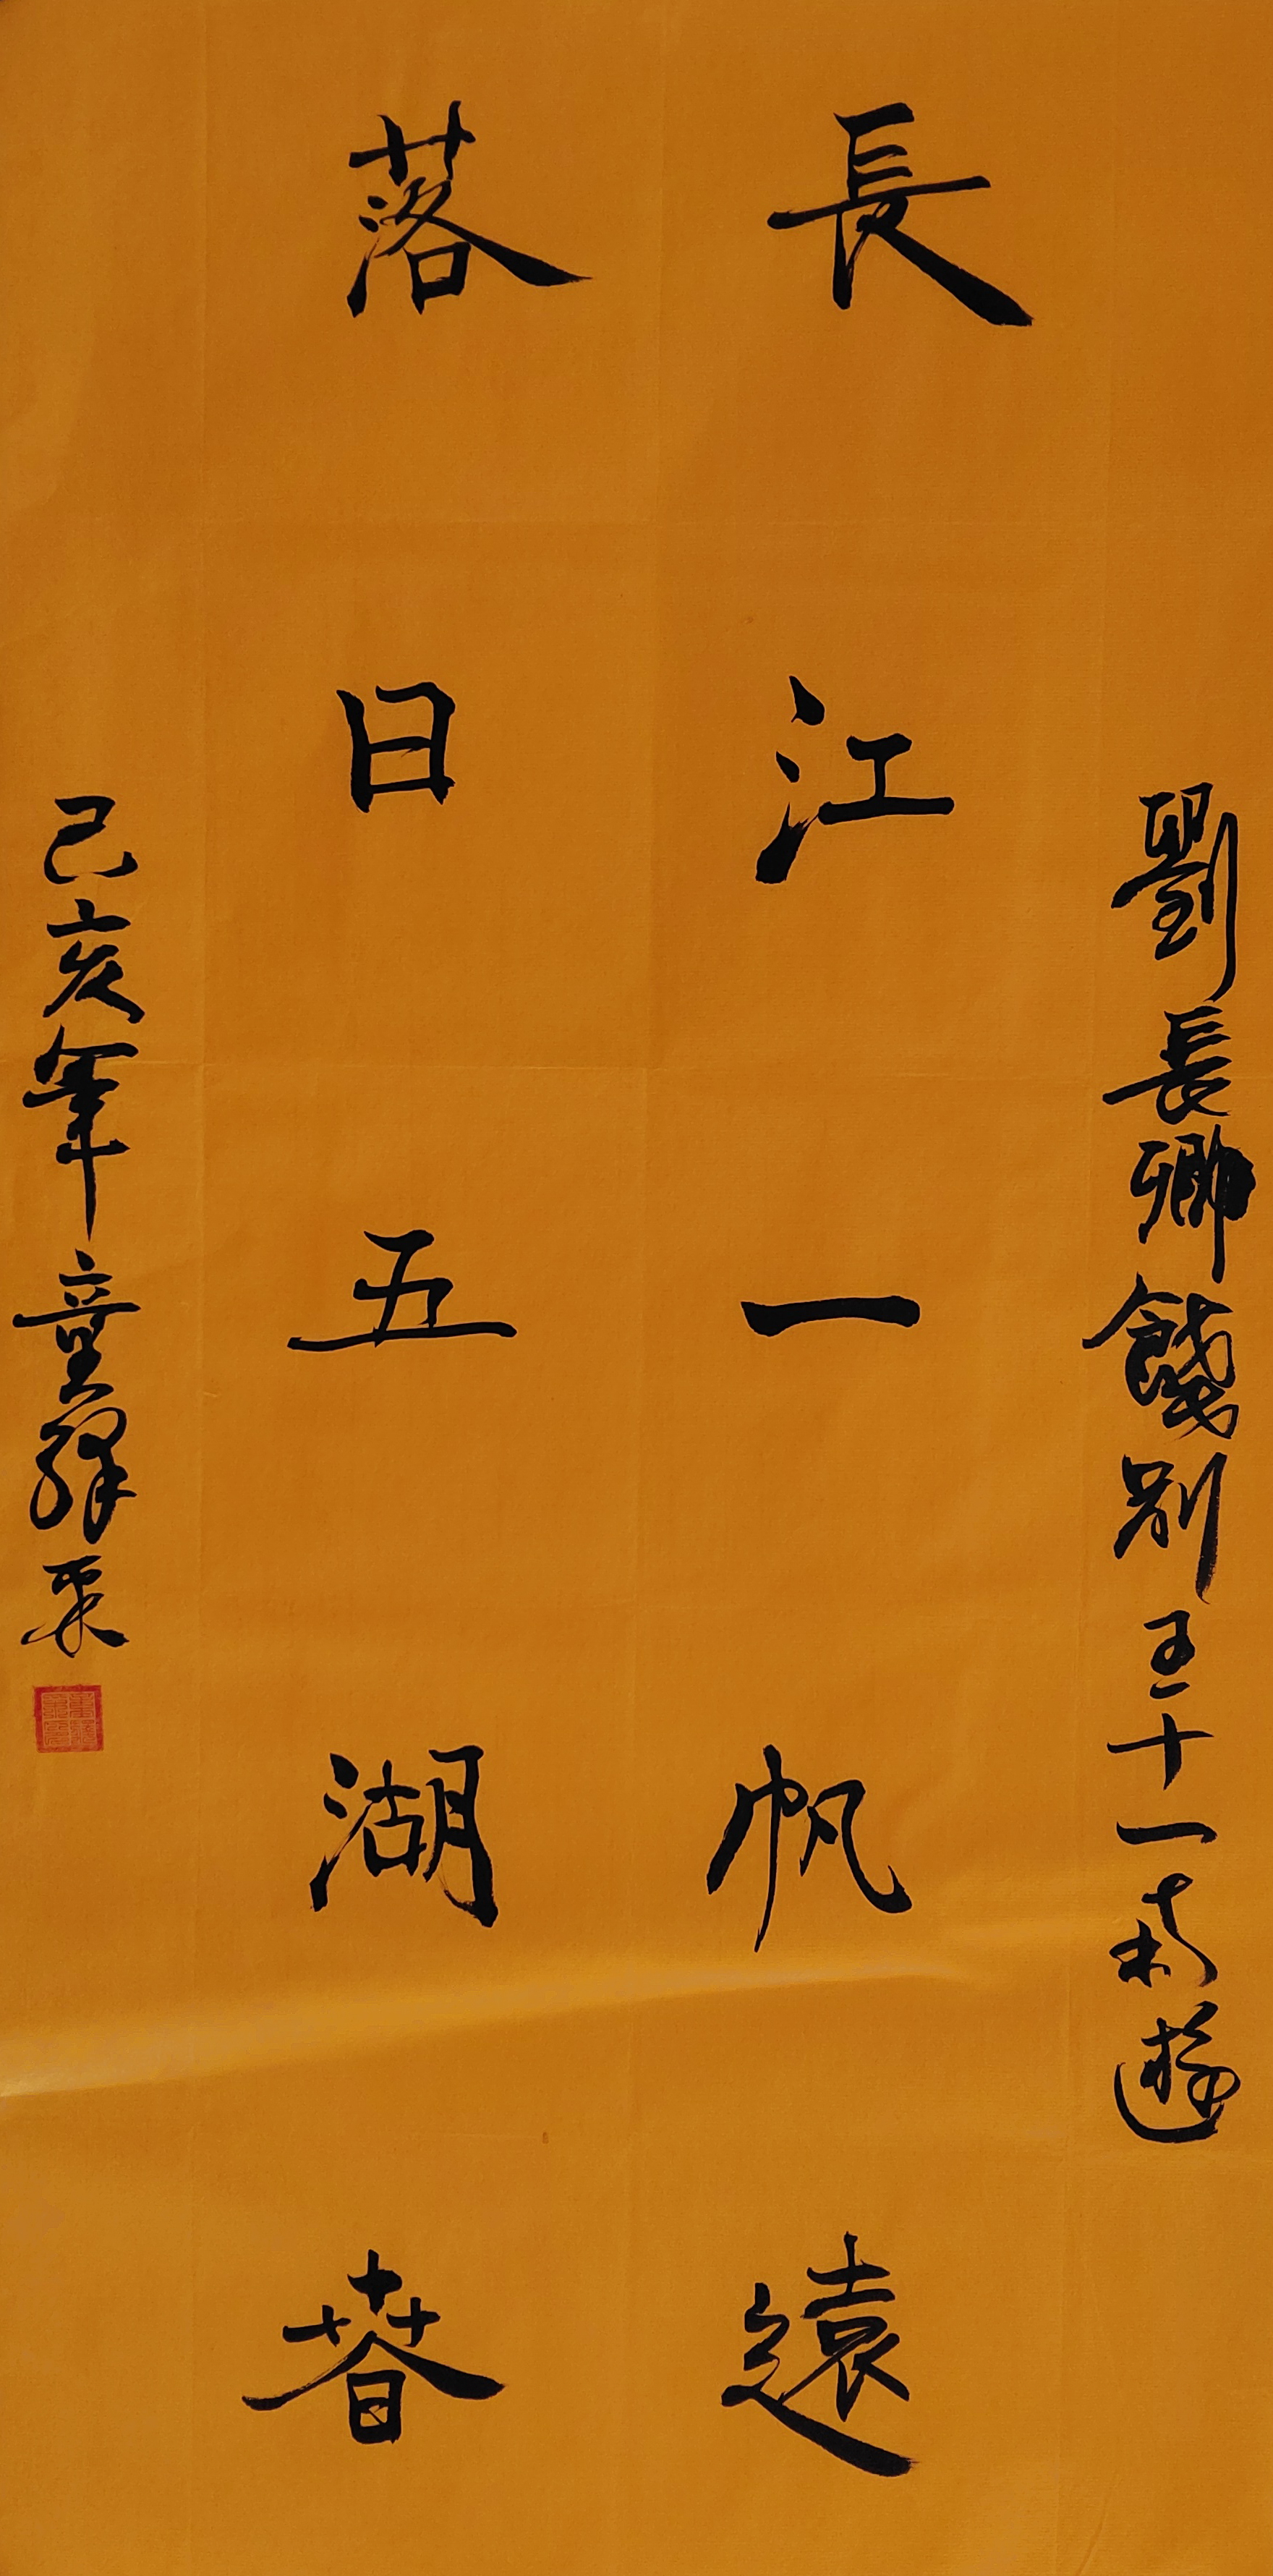 劉長卿餞別王十一南遊
長江一帆遠
落日五湖春
己亥年童繹采